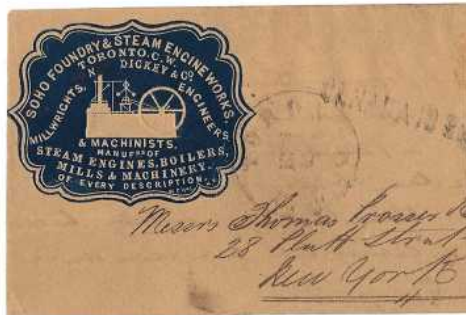 SOHO FOUNDRY & STEAM ENGINE WORKS.
TORONTO. C.W.
N DICKEY & Co
MILLWRIGHTS, ENGINEERS
& MACHINISTS.
MANUFRS OF
STEAM ENGINES, BOILERS,
MILLS & MACHINERY.
OF EVERY DESCRIPTION.
Messrs Thomas Prosser &
28 Platt Street
New York